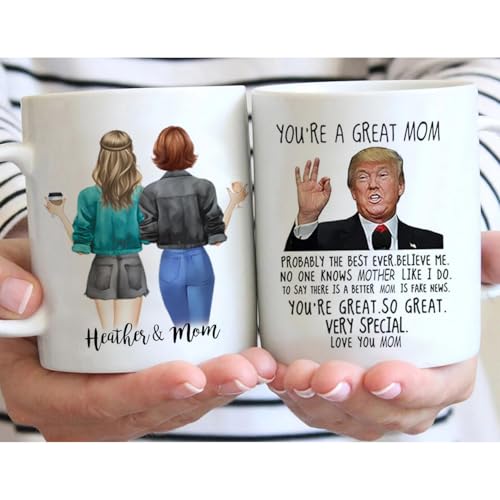 Heather & Mom
YOU'RE A GREAT MOM
PROBABLY THE BEST EVER.BELIEVE ME.
NO ONE KNOWS MOTHER LIKE I DO.
TO SAY THERE IS A BETTER MOM IS FAKE NEWS.
YOU'RE GREAT.SO GREAT.
VERY SPECIAL.
LOVE YOU MOM